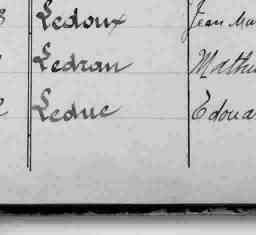 Ledoux Jean Ma
Ledran Mathu
Leduc Edoua